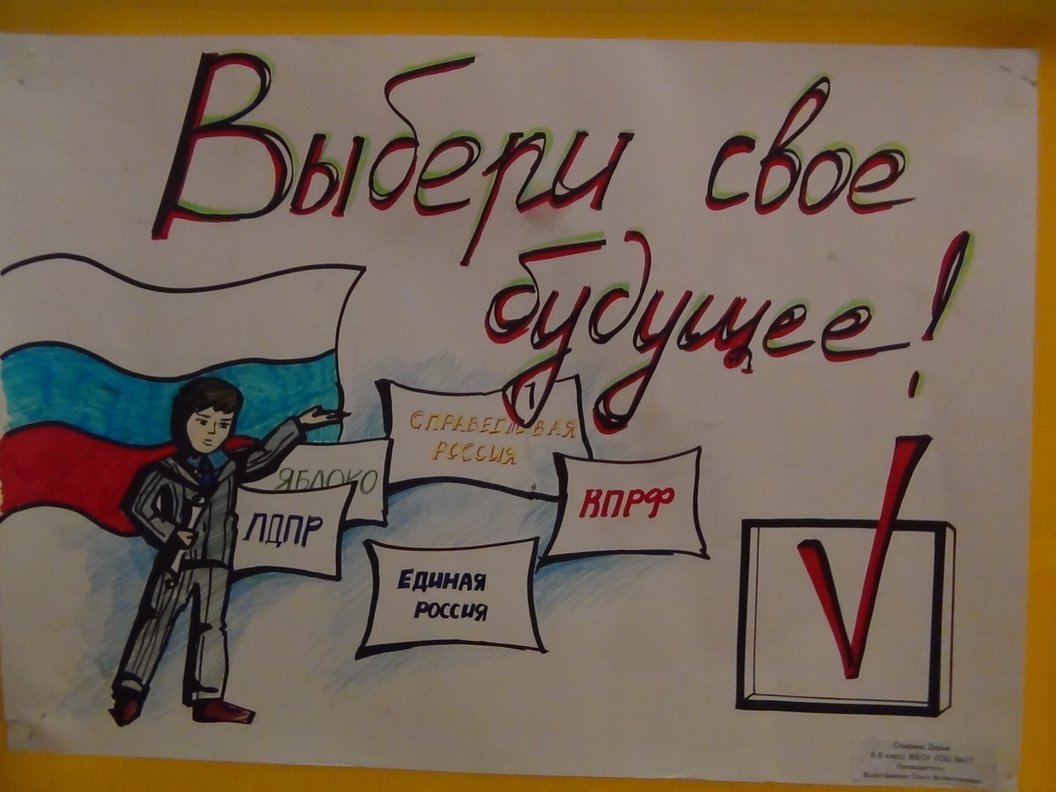 Выбери свое
будущее!
СПРАВЕДЛИВАЯ
РОССИЯ
ЯБЛОКО
КПРФ
ЛДПР
ЕДИНАЯ
РОССИЯ
Спирина Дарья
6-Б класс МБОУ СОШ
Руководитель:
Ольга Валентиновна